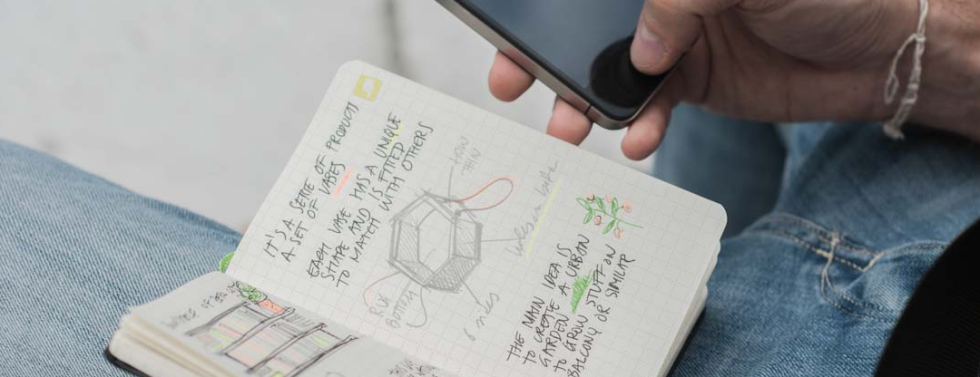 IT'S A SERIE OF PRODUCTS
A SET OF VASES
EACH VASE HAS A UNIQUE
SHAPE AND IS FITTED
TO MATCH WITH OTHERS
HOW
THIN
BOTTOM
6 sides
THE MAIN IDEA IS
TO CREATE A URBAN
GARDEN
TO GROW STUFF ON
BALCONY OR SIMILAR